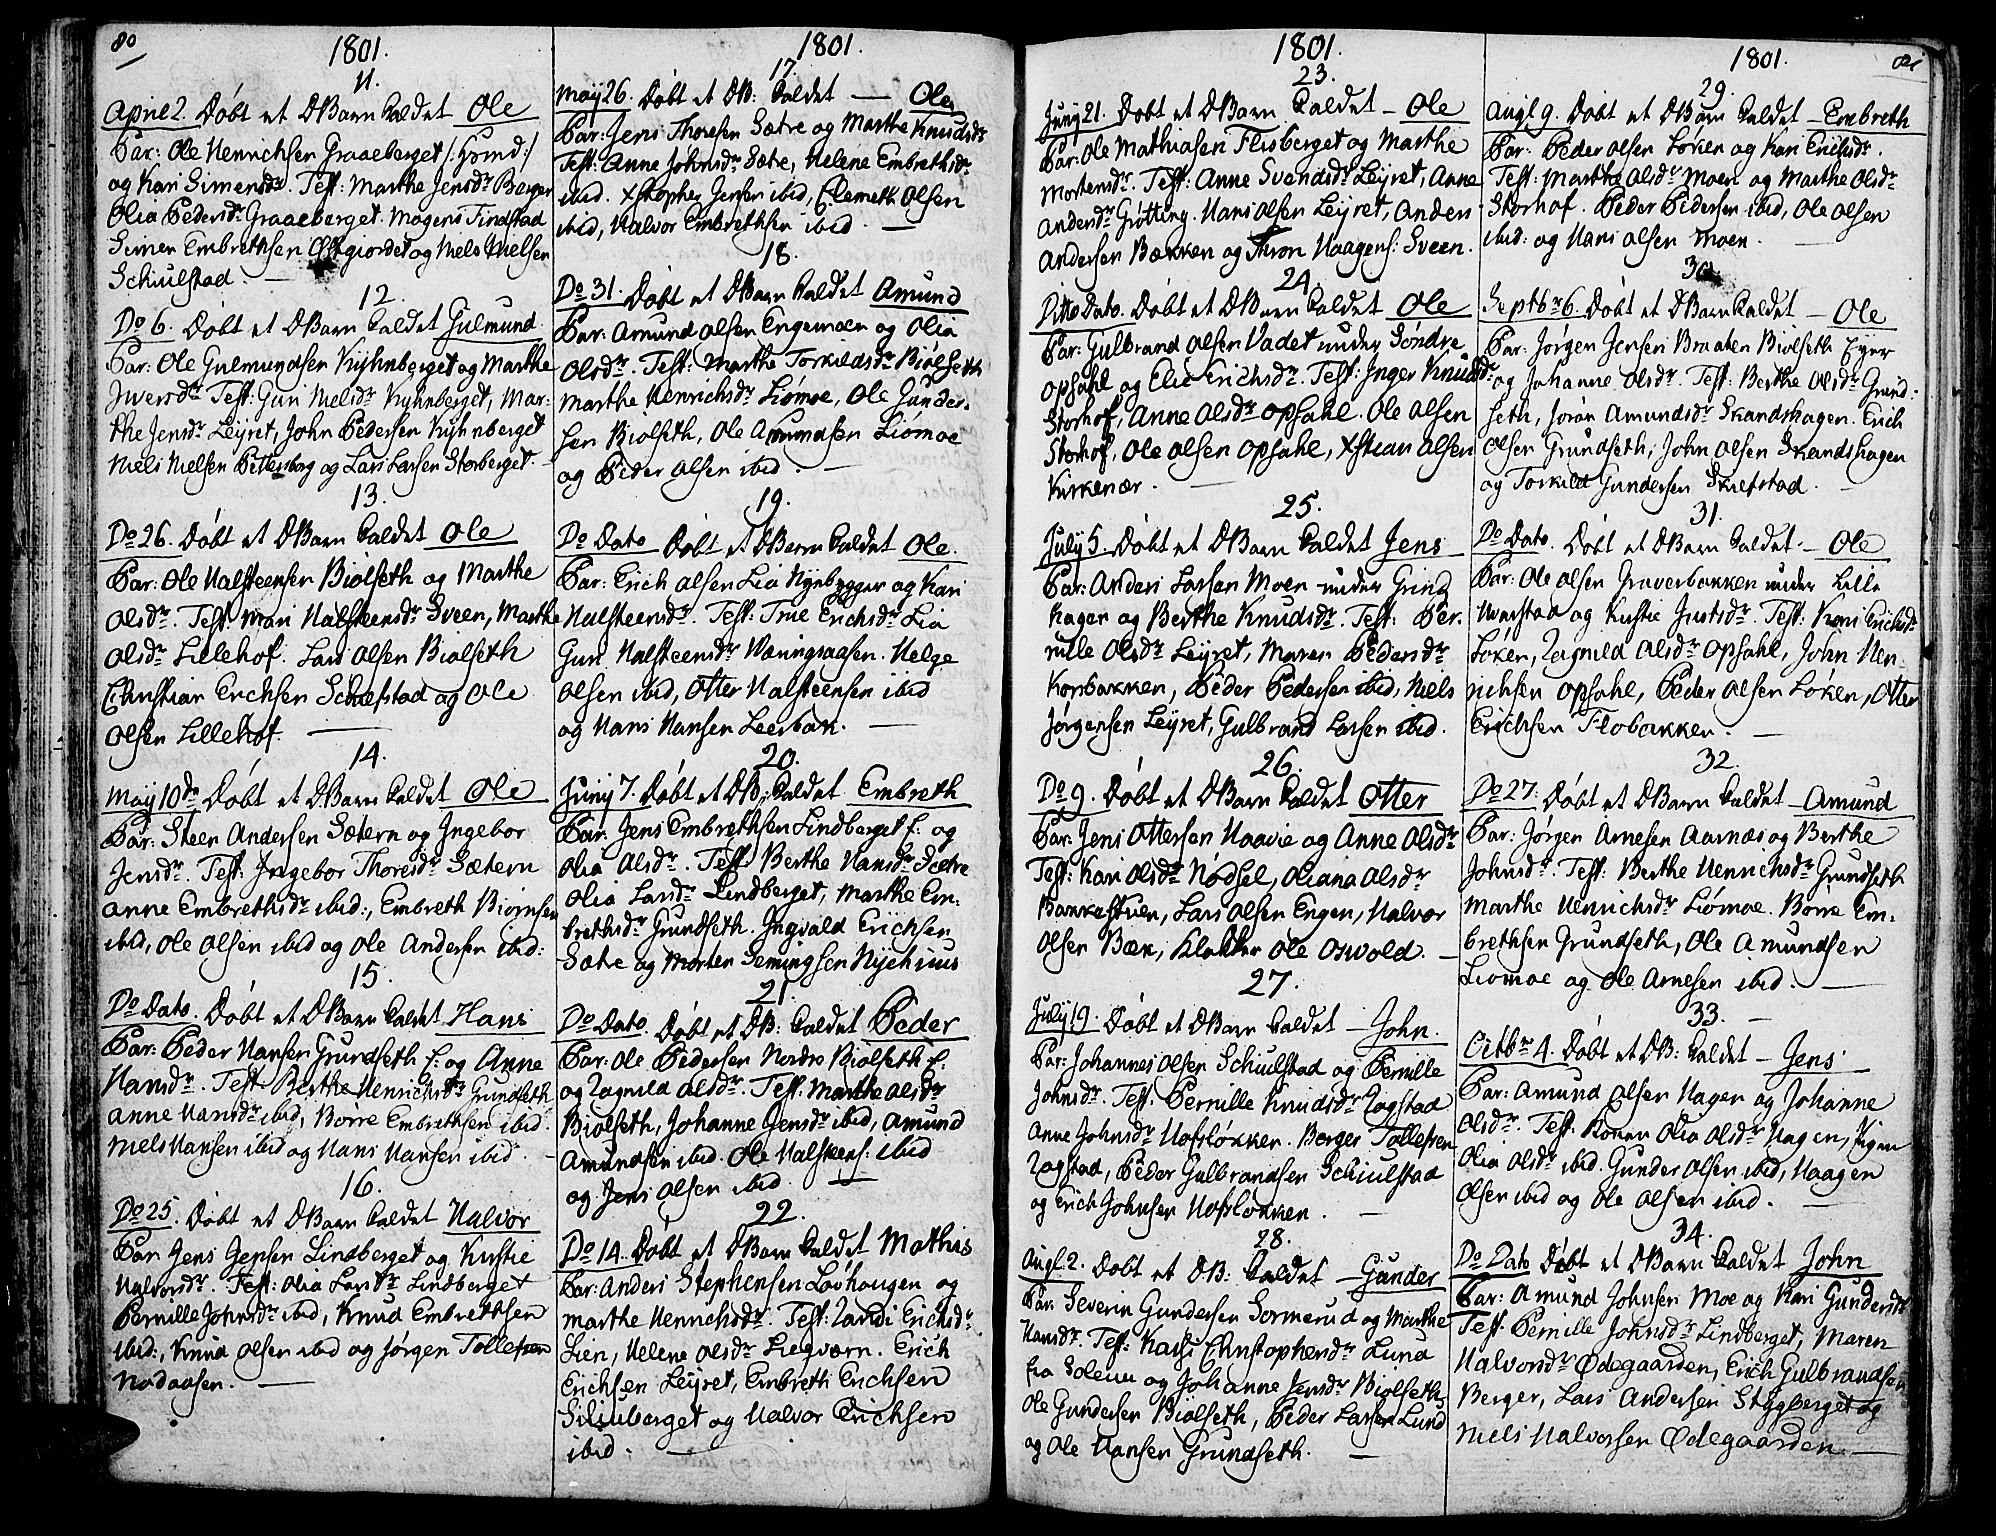 80
1801.
11.
Apriel 2. Døbt et DBarn kaldet Ole
Par: Ole Henrichsen Graaeberget /: Hsmd :/
og Kari Simensdr. Test: Marthe Jensdr Berger
Olia Pedersdr Graaeberget. Mogens Findstad
Simen Embrethsen Østgiordet og Niels Nielsen
Schiulstad.
12.
Do 6. Døbt et DBarn kaldet Gulmund
Par: Ole Gulmundsen Kyhnberget og Marthe
Iversdr Test: Guri Nielsdr Kyhnberget, Mar:
the Jensdr Leyret, John Pedersen Kyhnberget
Niels Nielsen Petterborg og Lars Larsen Storberget.
13.
Do 26. Døbt et DBarn kaldet Ole
Par: Ole Halsteensen Biølseth og Marthe
Olsdr. Test: Mari Halsteensdr Sveen, Marthe
Olsdr Lillehof. Lars Olsen Biølseth
Christian Erichsen Schiefstad og Ole
Olsen Lillehof.
14.
May 10de Døbt et DBarn kaldet Ole
Par: Steen Andersen Sætern og Ingebor
Jensdr. Test: Ingebor Thoresdr Sætern
Anne Embrethsdr ibid:, Embreth Biørnsen
ibid, Ole Olsen ibid og Ole Andersen ibid:
15.
Do Dato. Døbt et DBarn kaldet Hans
Par: Peder Hansen Grundseth f: og Anne
Hansdr. Test: Berthe Henrichsdr Grundseth
Anne Hansdr ibid, Børre Embrethsen ibid.
Niels Hansen ibid og Hans Hansen ibid.
16.
Do 25. Døbt et DBarn kaldet Halvor
Par: Jens Jepsen Lindberget og Kirstie
Halvorsdr. Test: Olia Larsdr Lindberget
Pernille Johnsdr ibid, Knud Embrethsen
ibid:, Knud Olsen ibid og Jørgen Tollefsen
Nodaasen.
1801.
17.
May 26. Døbt et DB: kaldet — Ole
Par: Jens Thoresen Sætre og Marthe Knudsdr
Test: Anne Johnsdr Sætre, Helene Embrethsdr
ibid. Xstopher Jensen ibid, Clemeth Olsen
ibid, Halvor Embrethsen ibid.
18.
Do 31. Døbt et DBarn kaldet Amund
Par: Amund Olsen Engemoen og Olia
Olsdr. Test: Marthe Torkildsdr Biølseth
Marthe Henrichsdr Liømoe, Ole Gunder-
sen Biølseth, Ole Amundsen Liømoe
og Peder Olsen ibid.
19.
Do Dato Døbt et DBarn kaldet Ole.
Par: Erich Olsen Lia Nyebygger og Kari
Halsteensdr. Test: True Erichsdr Lia
Guri Halsteensdr Wæringsaasen. Helge
Olsen ibid, Otter Halsteensen ibid
og Hans Hansen Leerbæk.
20.
Juny 7. Døbt et DB: kaldet Embreth
Par: Jens Embrethsen Lindberget f: og
Olia Olsdr. Test: Berthe Hansdr Sætre
Olia Larsdr Lindberget, Marthe Em:
brethsdr Grundseth. Ingvald Erichsen
Sætre og Morten Semingsen Nyehuus
21.
Do Dato. Døbt et DB: kaldet Peder
Par: Ole Pedersen Nordre Biølseth f:
og Ragnild Olsdr. Test: Marthe Olsdr
Biølseth, Johanne Jensdr ibid, Amund
Amundsen ibid. Ole Halsteens: ibid
og Jens Olsen ibid.
22.
Do 14. Døbt et DBarn kaldet Mathis
Par: Anders Stephensen Løvhaugen og
Marthe Henrichsdr. Test: Randi Erichsdr
Lien, Helene Olsdr Liegværn. Erich
Erichsen Leyret, Embreth Erichsen
Siliuberget og Halvor Erichsen
ibid.
1801.
23.
Juny 21. Døbt et DBarn kaldet — Ole
Par: Ole Mathiasen Flisberget og Marthe
Mortensdr. Test: Anne Svendsdr Leyret, Anne
Andersdr Grøtting. Hans Olsen Leyret, Anders
Andersen Bækken og Thron Haagens: Sveen.
24.
Ditto Dato. Døbt et DBarn kaldet Ole
Par: Gulbrand Olsen Vadet under Søndre
Opsahl og Elie Erichsdr. Test: Inger Knudsdr
Storhof, Anne Olsdr Opsahl. Ole Olsen
Storhof, Ole Olsen Opsahl, Xstian Olsen
Kirkenær.
25.
July 5. Døbt et DBarn kaldet Jens
Par: Anders Larsen Moen under Grind
hagen og Berthe Knudsdr. Test: Per-
nille Olsdr Leyret, Maren Pedersdr
Kørbakken, Peder Pedersen ibid, Niels
Jørgensen Leyret, Gulbrand Larsen ibid.
26.
Do 9. Døbt et DBarn kaldet Otter
Par: Jens Ottersen Haavie og Anne Olsdr
Test: Kari Olsdr Nødsel, Oliana Olsdr
Bakkestuen, Lars Olsen Engen, Halvor
Olsen Bæk, Klokker Ole Oswold.
27.
July 19. Døbt et DBarn kaldet — John.
Par: Johannes Olsen Schiulstad og Pernille
Johnsdr. Test: Pernille Knudsdr Rogstad
Anne Johnsdr Hofsløkken. Berger Tollefsen
Rogstad, Peder Gulbrandsen Schiulstad
og Erich Johnsen Hofsløkken.
28.
Augt 2. Døbt et DB: kaldet — Gunder
Par: Severin Gundersen Sormerud og Marthe
Hansdr. Test: Kari Christophersdr Lund
fra Soleur og Johanne Jensdr Biølseth
Ole Gundersen Biølseth, Peder Larsen Lund
og Ole Hansen Grundseth.
1801.
29.
Augt 9. Døbt et DBarn kaldet — Embreth
Par: Peder Olsen Løken og Kari Erichsdr.
Test: Marthe Olsdr Moen og Marthe Olsdr
Storhof. Peder Pedersen ibid, Ole Olsen
ibid: og Hans Olsen Moen.
30.
Septbr 6. Døbt et DBarn kaldet — Ole
Par: Jørgen Jensen Braaten Biølseth Eyer
og Johanne Olsdr. Test: Berthe Olsdr Grund:
seth, Jøran Amundsdr Skandshagen. Erich
Olsen Grundseth, John Olsen Skandshagen
og Torkild Gundersen Skiefstad.
31.
Do Dato. Døbt et DBarn kaldet — Ole
Par: Ole Olsen Graverbakken under Lille
Hverstad og Kirstie Justsdr. Test: Kari Erichsdr
Løken, Ragnild Olsdr Opsahl, John Hen-
richsen Opsahl, Peder Olsen Løken, Otter
Erichsen Flobakken.
32.
Do 27. Døbt et DBarn kaldet — Amund
Par: Jørgen Arnesen Aarnæs og Berthe
Johnsdr. Test: Berthe Henrichsdr Grundseth
Marthe Henrichsdr Liømoe. Børre Em:
brethsen Grundseth, Ole Amundsen
Liømoe og Ole Arnesen ibid.
33.
Octbr 4. Døbt et DB: kaldet — Jens
Par: Amund Olsen Hagen og Johanne
Olsdr. Test: Konen Olia Olsdr Hagen, Pigen
Olia Olsdr ibid. Gunder Olsen ibid, Haagen
Olsen ibid og Ole Olsen ibid.
34.
Do Dato Døbt et DBarn kaldet John
Par: Amund Johnsen Moe og Kari Gundersdr
Test: Pernille Johnsdr Lindberget, Maren
Halvorsdr Ødegaarden, Erich Gulbrandsen
Berger, Lars Andersen Stygberget og
Niels Halvorsen Ødegaarden.